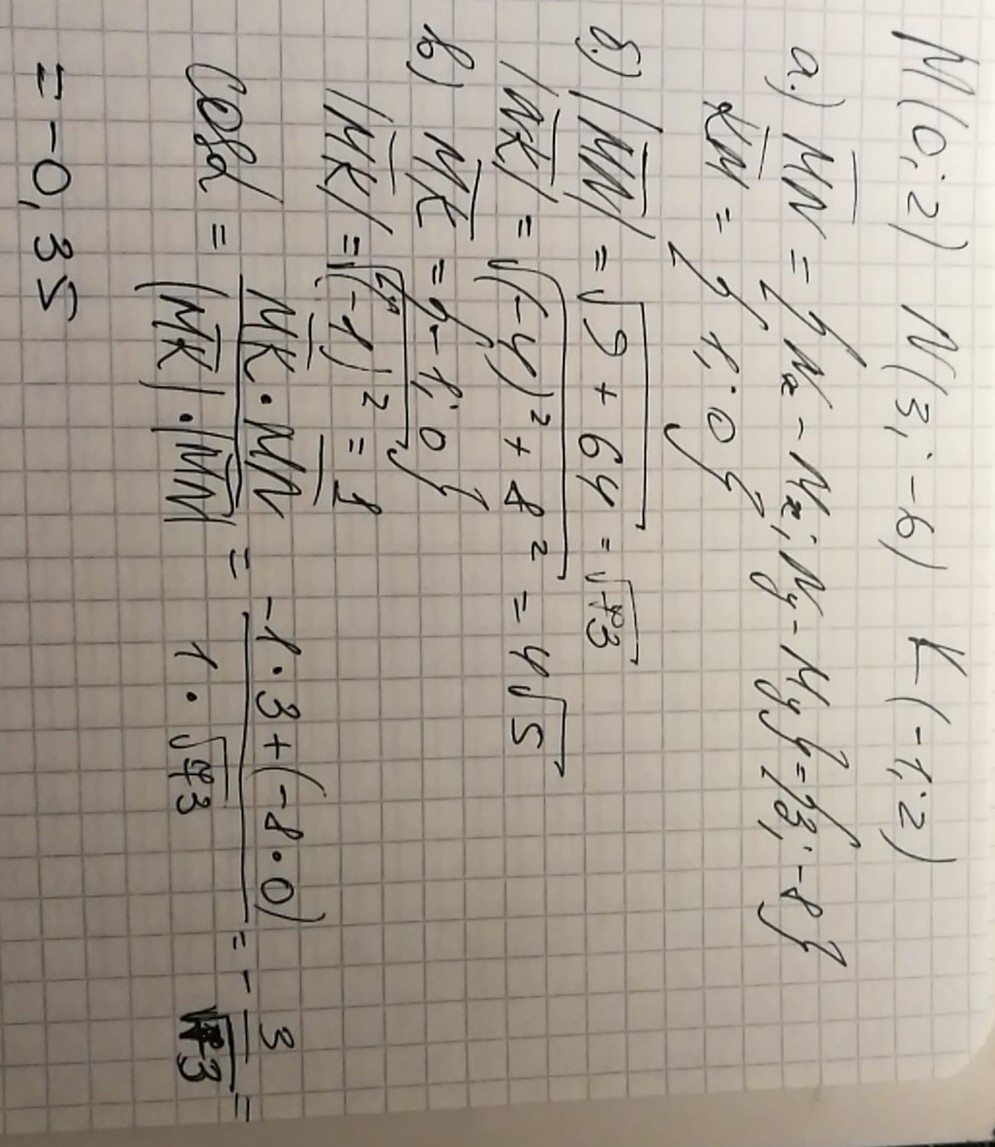 M(0; 2) N(3; -6) K(-1; 2)
а.) MN = {Nx - Mx; Ny - My} = {3; -8}
KM = {1; 0}
б.) |MN| = √9 + 64 = √73
|NK| = √(-4)² + 8² = 4√5
в) MK = {-1; 0}
|MK| = √(-1)² = 1
cosα = MK · MN / |MK| · |MN| = -1 · 3 + (-8 · 0) / 1 · √73 = - 3 / √73 =
= -0,35